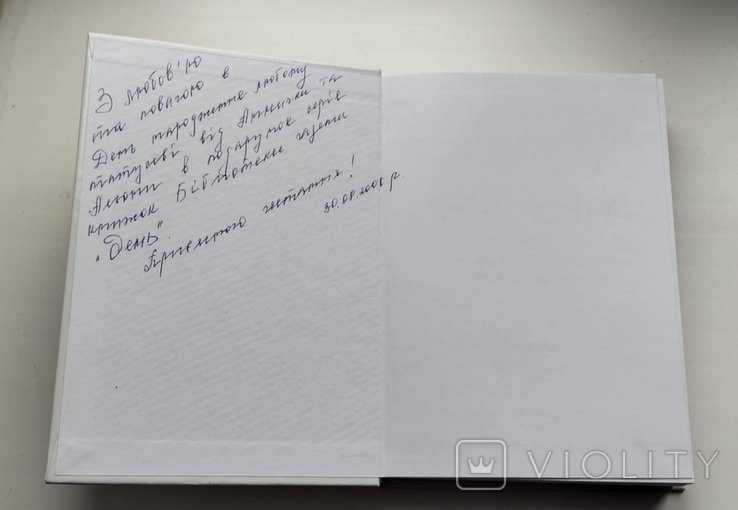 З любов'ю
та повагою в
День народження любому
татусеві від Аннички та
в подарунок серія
книжок Бібліотеки газети
"День".
Приємного читання!
30.08.2006 р.
VIOLITY